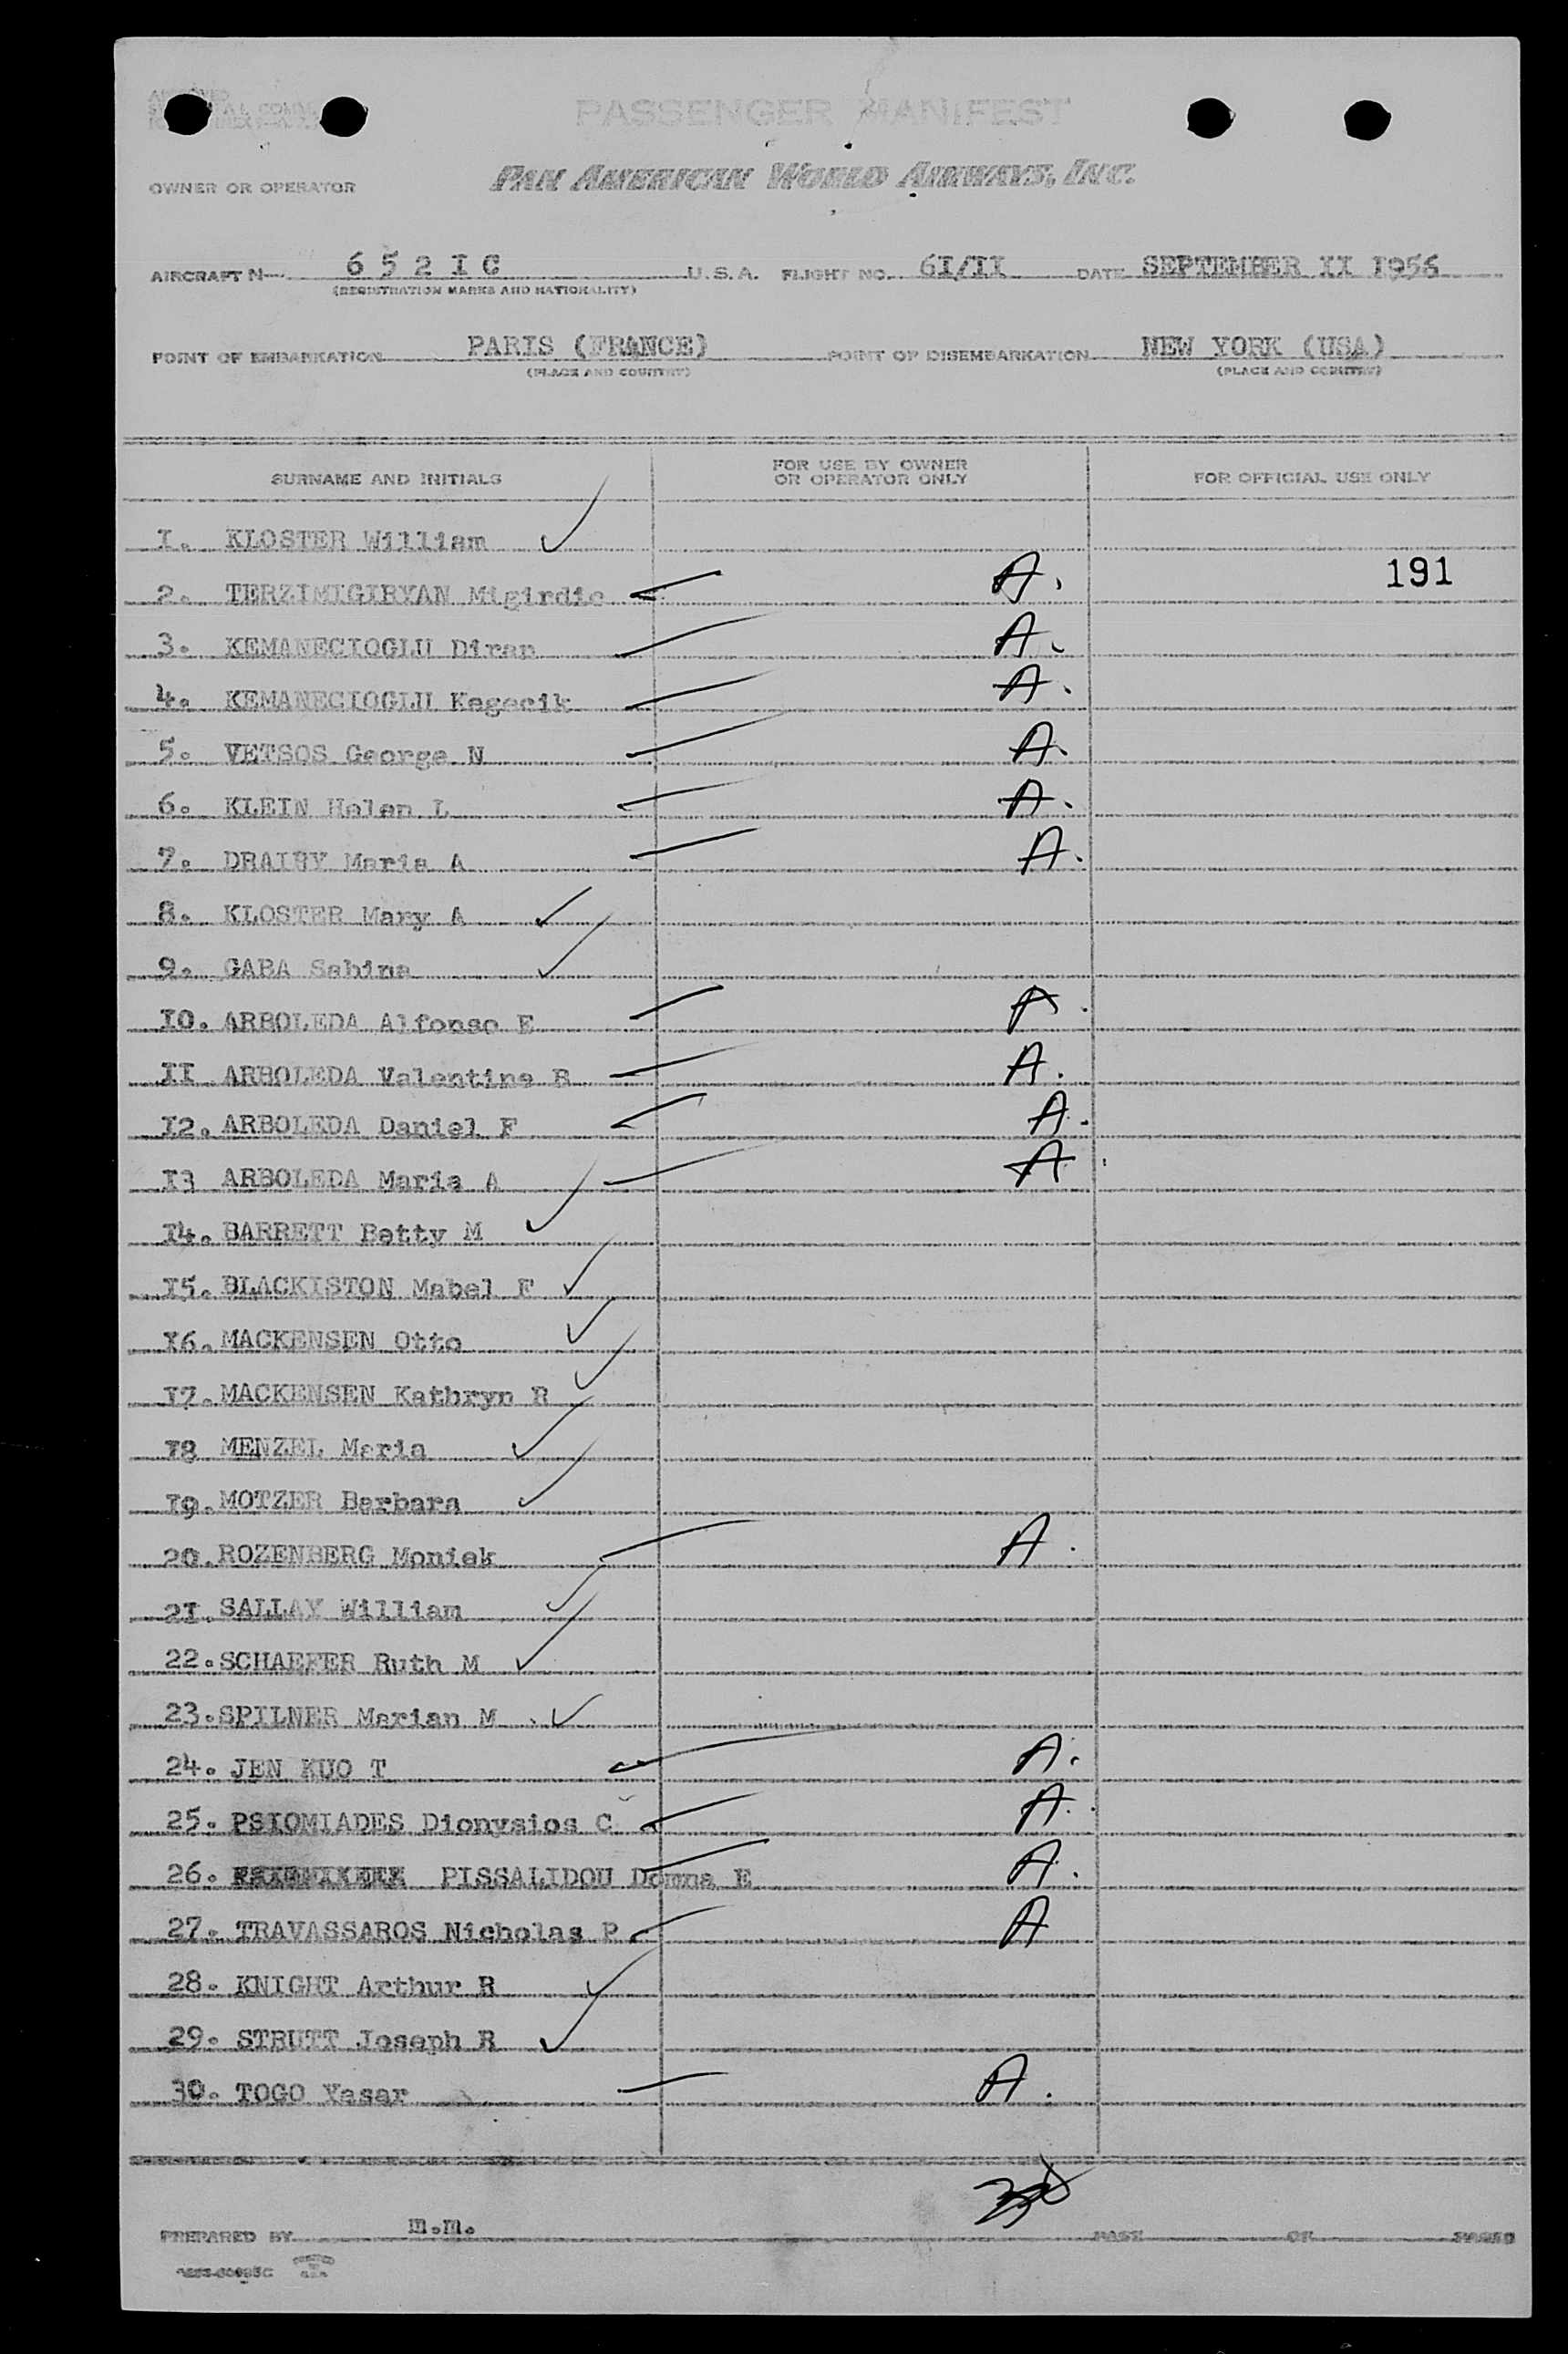 PASSENGER MANIFEST
OWNER OR OPERATOR PAN AMERICAN WORLD AIRWAYS, INC.
AIRCRAFT N 6 5 2 I C U.S.A. FLIGHT NO. 6I/II DATE SEPTEMBER II I956
(REGISTRATION MARKS AND NATIONALITY)
POINT OF EMBARKATION PARIS (FRANCE) POINT OF DISEMBARKATION NEW YORK (USA)
(PLACE AND COUNTRY) (PLACE AND COUNTRY)
SURNAME AND INITIALS FOR USE BY OWNER OR OPERATOR ONLY FOR OFFICIAL USE ONLY
I. KLOSTER William
191
2. TERZIMIGIRYAN Migirdic A.
3. KEMANECIOGLU Diran A.
4. KEMANECIOGLU Kegecik A.
5. VETSOS George N A.
6. KLEIN Helen L A.
7. DRAIBY Maria A A.
8. KLOSTER Mary A
9. GABA Sabina
I0. ARBOLEDA Alfonso E A.
II ARBOLEDA Valentina B A.
I2. ARBOLEDA Daniel F A.
I3 ARBOLEDA Maria A A.
I4. BARRETT Betty M
I5. BLACKISTON Mabel F
I6. MACKENSEN Otto
I7. MACKENSEN Kathryn R
I8 MENZEL Maria
I9. MOTZER Barbara
20. ROZENBERG Moniek A.
2I. SALLAY William
22. SCHAEFER Ruth M
23. SPILNER Marian M
24. JEN KUO T A.
25. PSIOMIADES Dionysios C A.
26. PISSALIDOU Domna E A.
27. TRAVASSAROS Nicholas P A
28. KNIGHT Arthur R
29. STRUTT Joseph R
30. TOGO Yasar A.
PREPARED BY m.m. PAGE OF PAGES